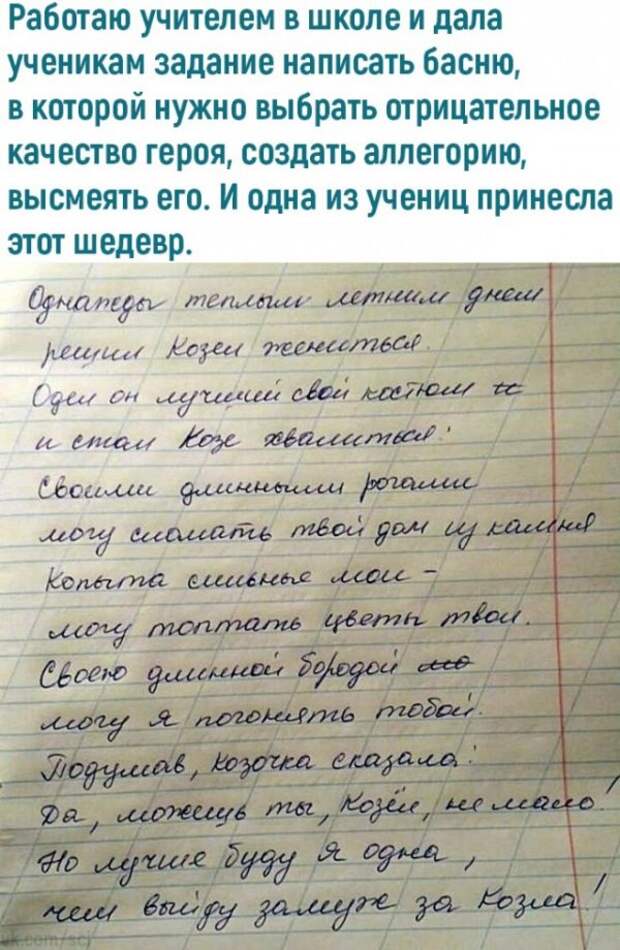 Работаю учителем в школе и дала
ученикам задание написать басню,
в которой нужно выбрать отрицательное
качество героя, создать аллегорию,
высмеять его. И одна из учениц принесла
этот шедевр.
Однажды теплым летним днем
решил Козел жениться.
Одел он лучший свой костюм и
и стал Козе хвалиться:
Своими длинными рогами
могу сломать твой дом из камня
Копыта сильные мои –
могу топтать цветы твои.
Своею длинной бородой мо
могу я погонять тобой.
Подумав, козочка сказала:
Да, можешь ты, Козёл, не мало!
Но лучше буду я одна,
чем выйду замуж за Козла!